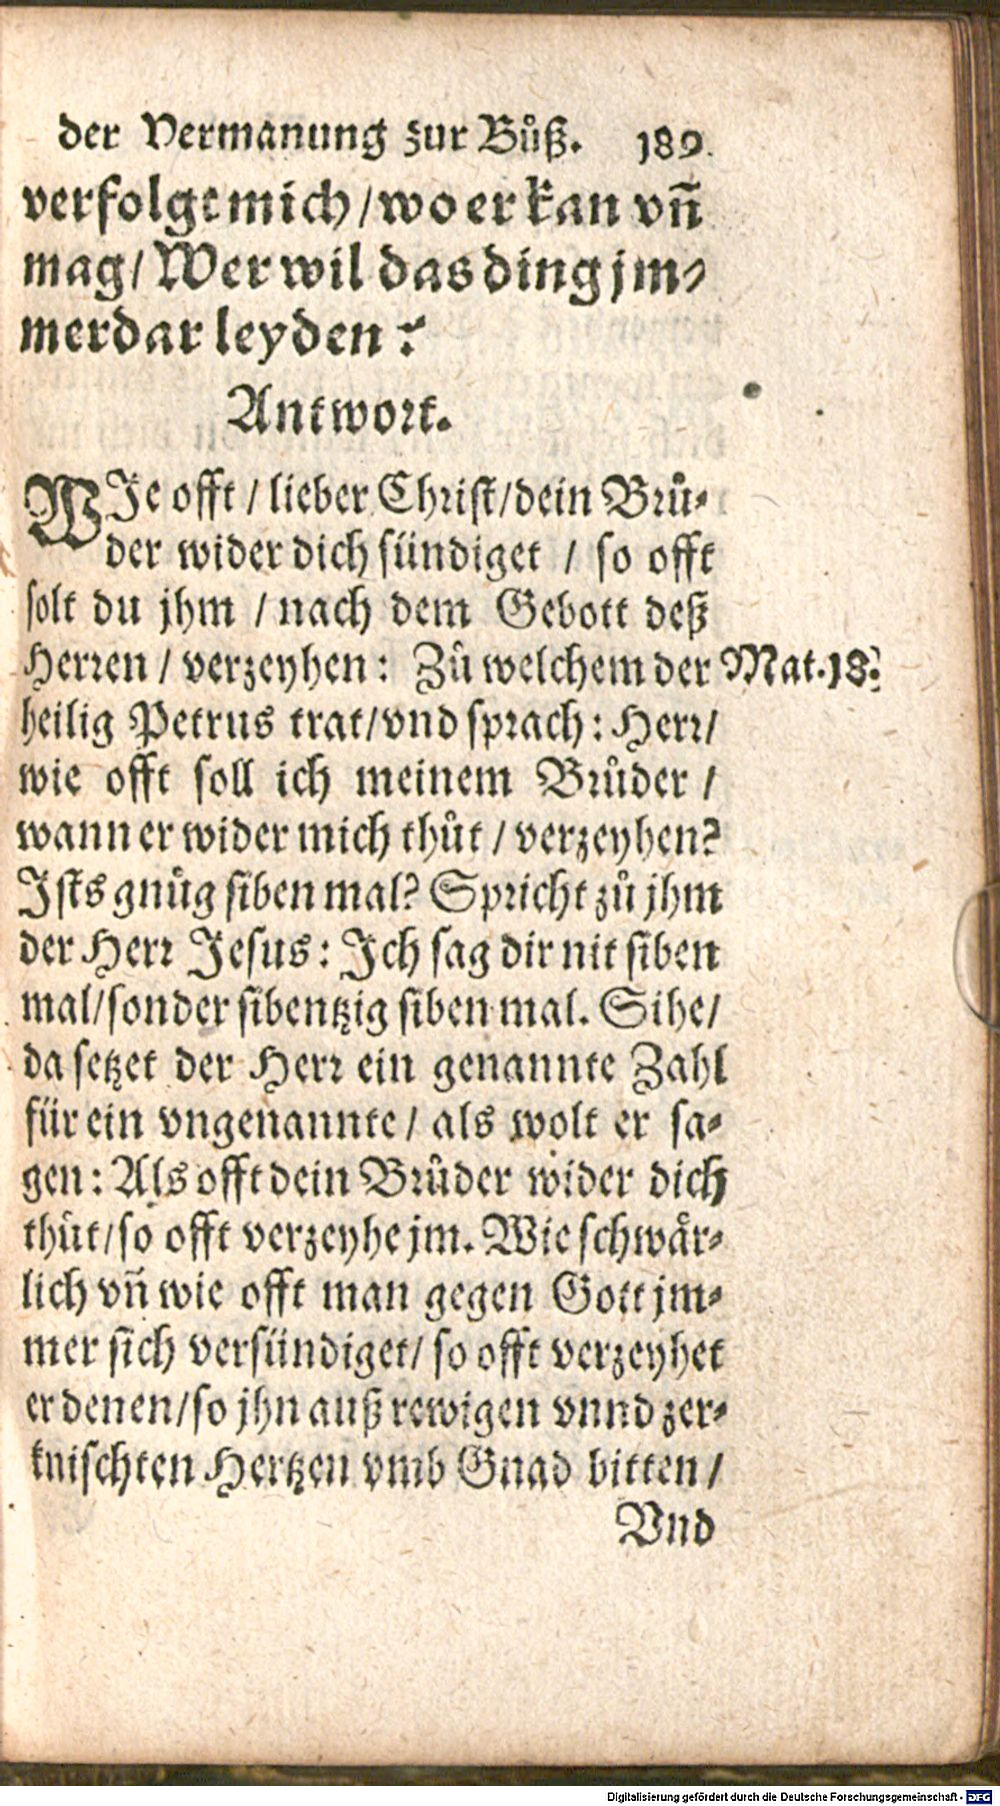 der Vermanung zur Bůß. 189.
verfolgt mich / wo er kan vñ
mag / Wer wil das ding jm-
merdar leyden?
Antwort.
WIe offt / lieber Christ / dein Brů-
der wider dich sündiget / so offt
solt du jhm / nach dem Gebott deß
Herren / verzeyhen: Zů welchem der Mat. 18.
heilig Petrus trat / vnd sprach: Herr /
wie offt soll ich meinem Brůder /
wann er wider mich thůt / verzeyhen?
Ists gnůg siben mal? Spricht zů jhm
der Herr Jesus: Ich sag dir nit siben
mal / sonder sibentzig siben mal. Sihe /
da setzet der Herr ein genannte Zahl
für ein vngenannte / als wolt er sa-
gen: Als offt dein Brůder wider dich
thůt / so offt verzeyhe jm. Wie schwår-
lich vñ wie offt man gegen Gott jm-
mer sich versündiget / so offt verzeyhet
er denen / so jhn auß rewigen vnnd zer-
knischten Hertzen vmb Gnad bitten /
Vnd
Digitalisierung gefördert durch die Deutsche Forschungsgemeinschaft - DFG